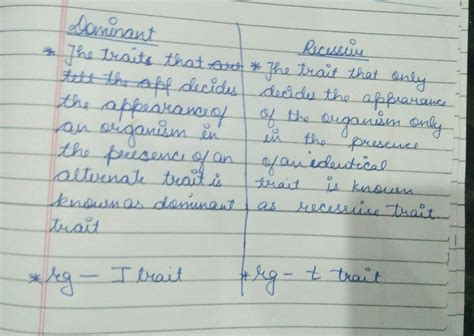 Dominant
* The traits that are
tell the app decides
the appearance of
an organism in
the presence of an
alternate trait is
known as dominant
trait
* eg - T trait
Recessive
* The trait that only
decides the apprarance
of the organism only
in the presence
of an identical
trait is known
as recessive trait
* eg - t trait